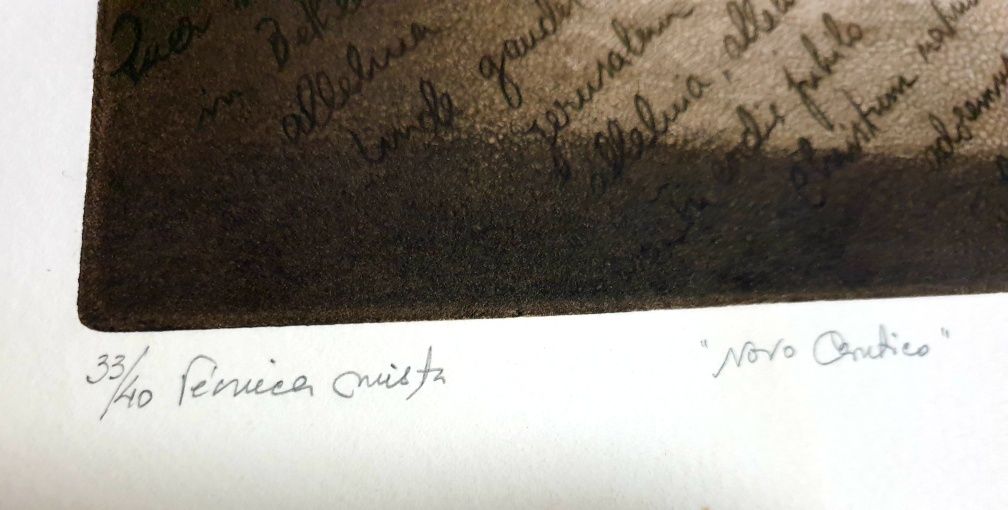 Puer
in Bet
alleluia
unde gaudet
Jerusalem
alleluia, alle
in cordis jubilo
Christum natum
adorem
33/40 Técnica mista
"Novo Cantico"